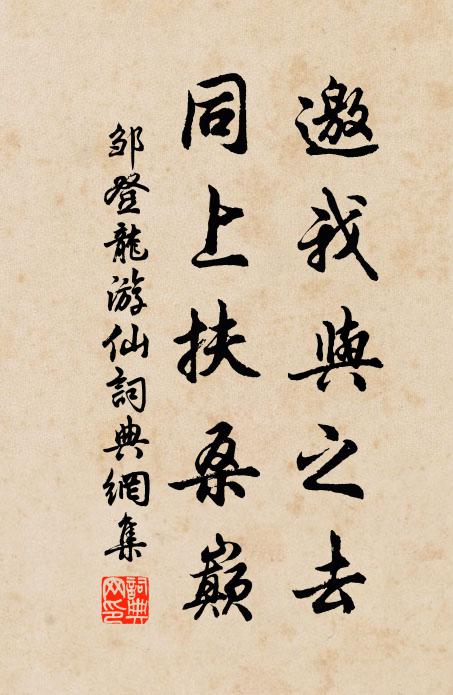 邀我與之去
同上扶桑巔
邹登龍游仙詞典網集
詞典
网印